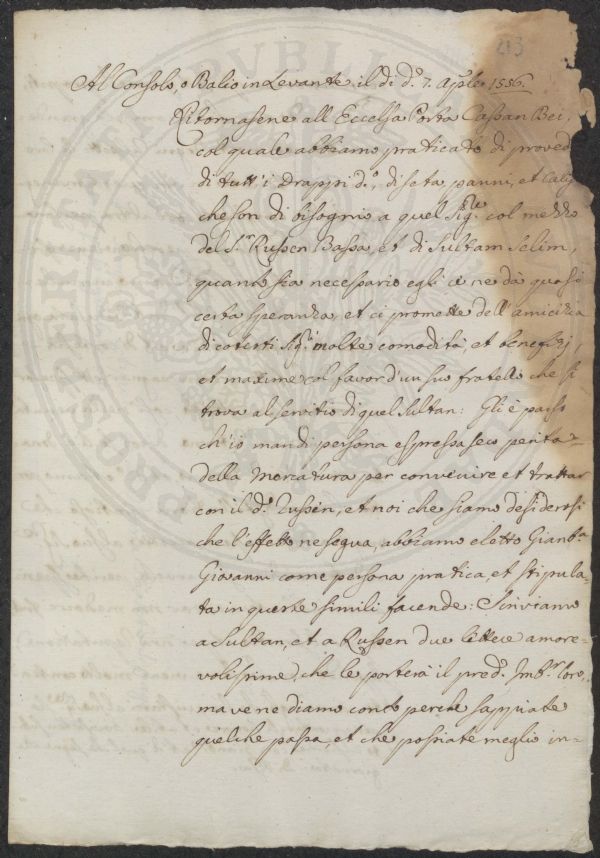 213
Al Consolo, o Balio in Levante, il dì d.º 7. Aple 1556.
Ritornasene all Eccelsa Porta Cassan Bei,
col quale abbiamo praticato di proved
di tutt'i Drappi d.º, di seta, panni, et
che son di bisognio a quel Sig.re col mezzo
del S.r Russen Bassa, et di Sultam Selim,
quanto sia necessario egli ci ne dà quasi
certa speranza, et ci promette dell'amicizia
di cotesti Sig.ri molte comodità, et benefizj,
et maxime col favor d'un suo fratello che si
trova al servitio di quel Sultan: Gli è parso
ch'io mandi persona espressa seco perita
della Mercatura per convenire et trattar
con il d.º Russen, et noi che siamo desiderosi
che l'effetto ne segua, abbiamo eletto Gianb.a
Giovanni come persona pratica, et stipula-
ta in queste simili facende: Scriviamo
a Sultan, et a Russen due lettere amore-
volissime, che le porterà il pred.º Imb.r loro,
ma ve ne diamo conto perché sappiate
quel che passa, et che possiate meglio in-